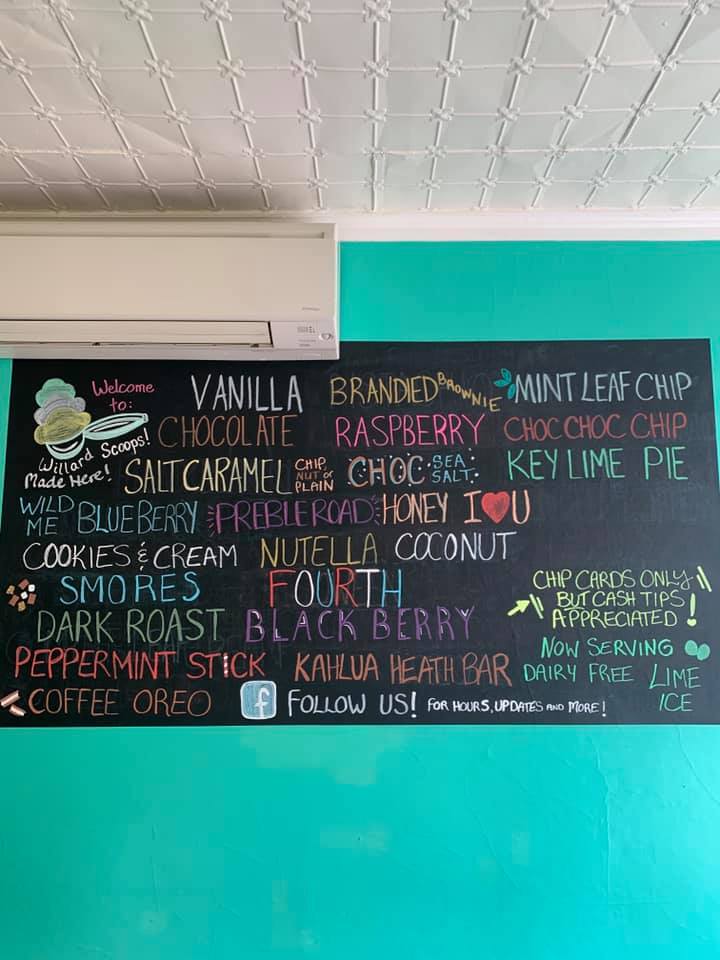 Welcome to:
Willard Scoops!
Made Here!
VANILLA BRANDIED BROWNIE MINT LEAF CHIP
CHOCOLATE RASPBERRY CHOC CHOC CHIP
SALT CARAMEL CHIP, NUT or PLAIN CHOC SEA SALT KEY LIME PIE
WILD ME BLUEBERRY PREBLE ROAD HONEY I ❤ U
COOKIES & CREAM NUTELLA COCONUT
SMORES FOURTH
DARK ROAST BLACK BERRY
PEPPERMINT STICK KAHLUA HEATH BAR
COFFEE OREO
CHIP CARDS ONLY
BUT CASH TIPS
APPRECIATED!
NOW SERVING
DAIRY FREE LIME
ICE
f FOLLOW US! FOR HOURS, UPDATES AND MORE!